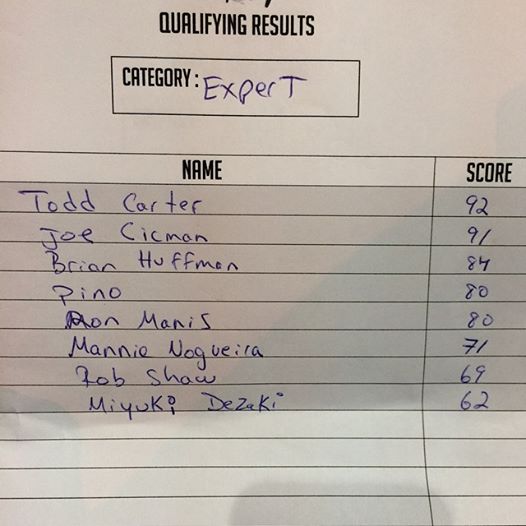 QUALIFYING RESULTS
CATEGORY: ExperT
NAME SCORE
Todd Carter 92
Joe Cicman 91
Brian Huffman 84
Pino 80
Ron Manis 80
Mannie Nogueira 71
Rob Shaw 69
Miyuki Dezaki 62